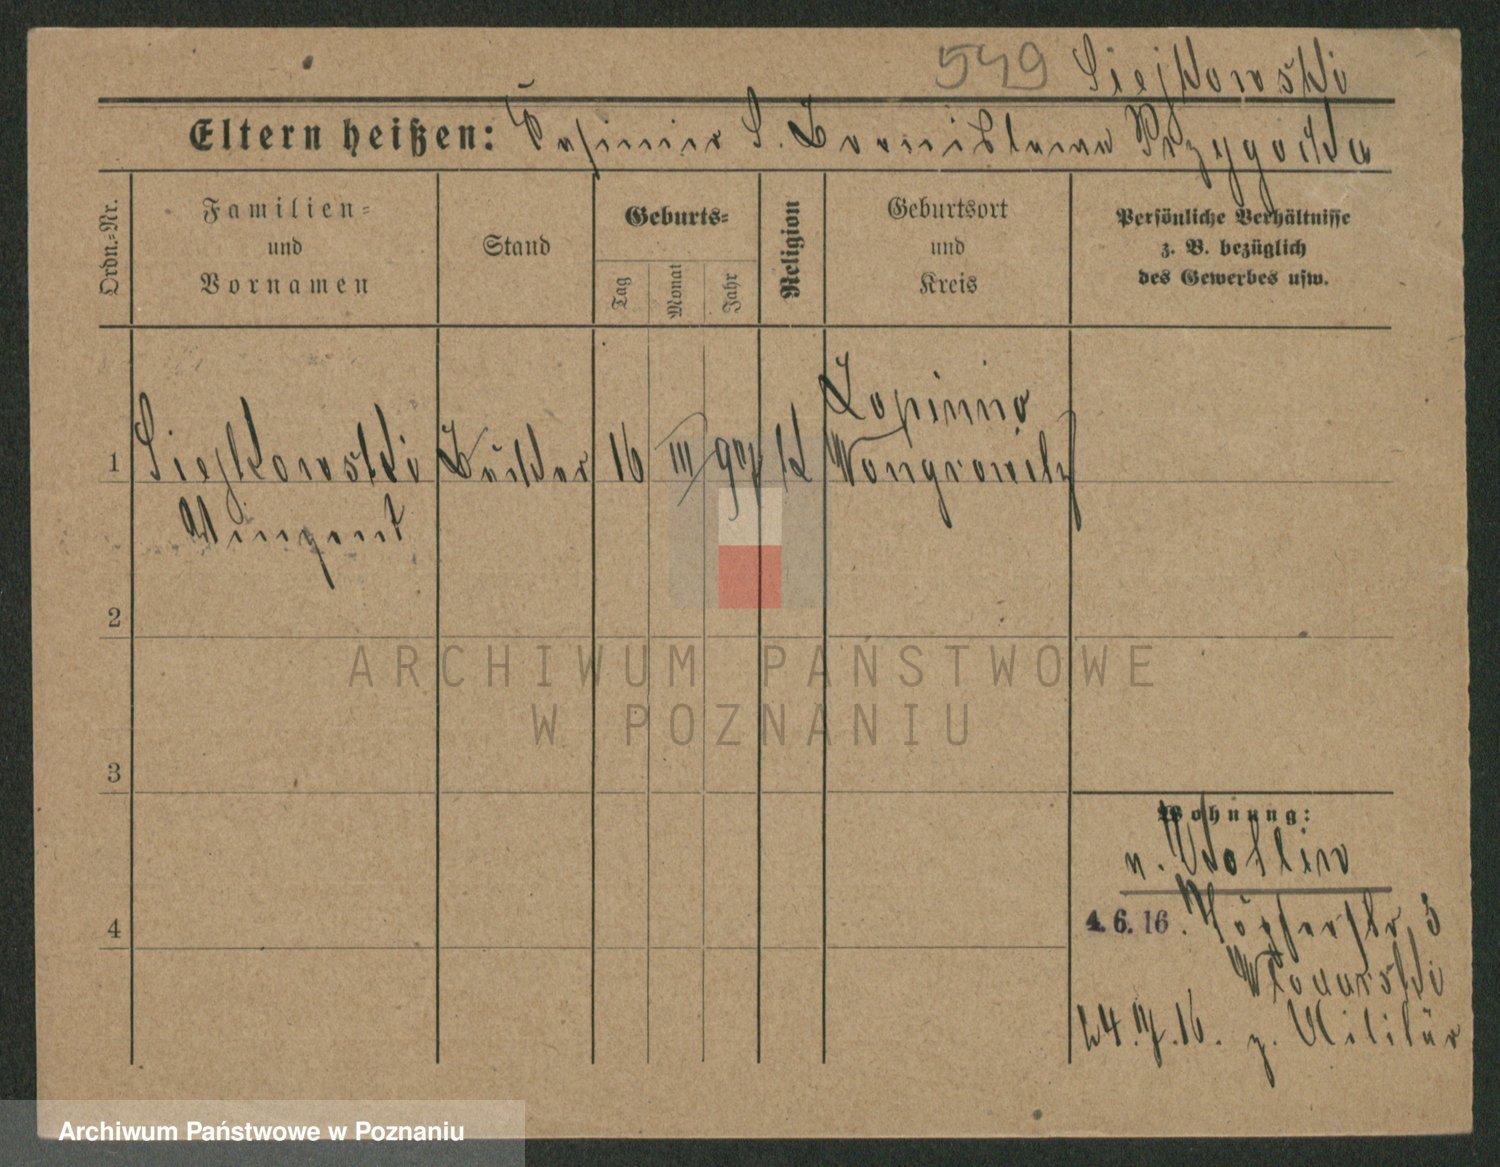 549 Siejkowski
Eltern heißen: Kasimir S. Bronislawa Przygocka
Ordn.-Nr.
Familien-
und
Vornamen
Stand
Geburts-
Tag
Monat
Jahr
Religion
Geburtsort
und
Kreis
Persönliche Verhältnisse
z. B. bezüglich
des Gewerbes usw.
1
Siejkowski
Vinzent
Bäcker
16
III
97
k
Lopinno
Wongrowitz
2
3
4
Wohnung:
n. Wollin
4.6.16.
Töpferstr. 3
24. 16. z. Militär
ARCHIWUM PAŃSTWOWE
W POZNANIU
Archiwum Państwowe w Poznaniu